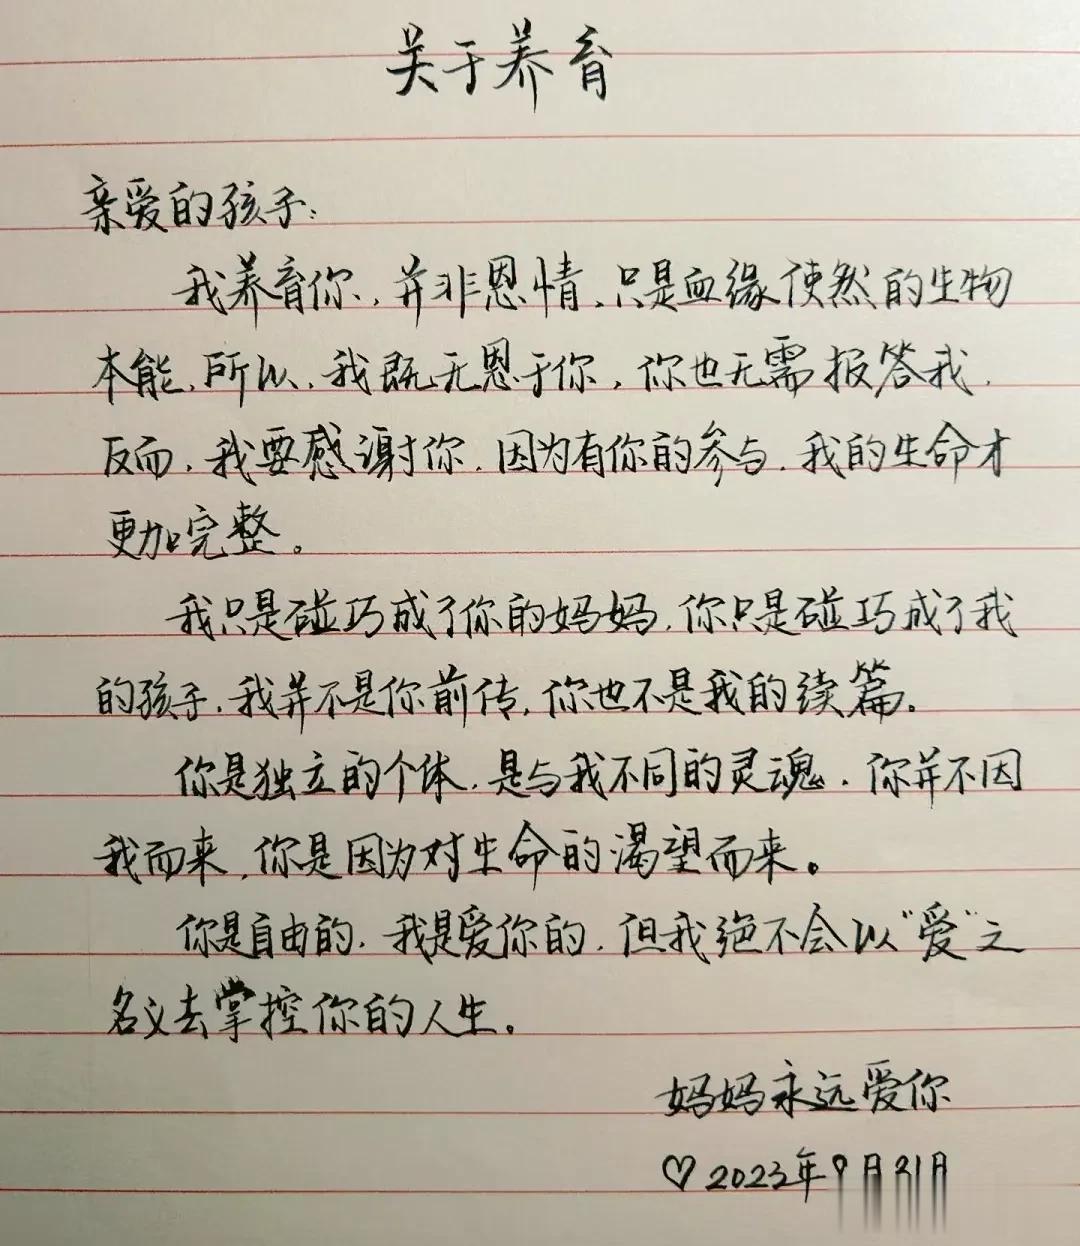 关于养育
亲爱的孩子:
我养育你,并非恩情,只是血缘使然的生物
本能,所以,我既无恩于你,你也无需报答我.
反而,我要感谢你.因为有你的参与.我的生命才
更加完整。
我只是碰巧成了你的妈妈,你只是碰巧成了我
的孩子,我并不是你前传,你也不是我的续篇.
你是独立的个体,是与我不同的灵魂.你并不因
我而来,你是因为对生命的渴望而来。
你是自由的.我是爱你的.但我绝不会以“爱”之
名义去掌控你的人生。
妈妈永远爱你
♡2023年9月21日